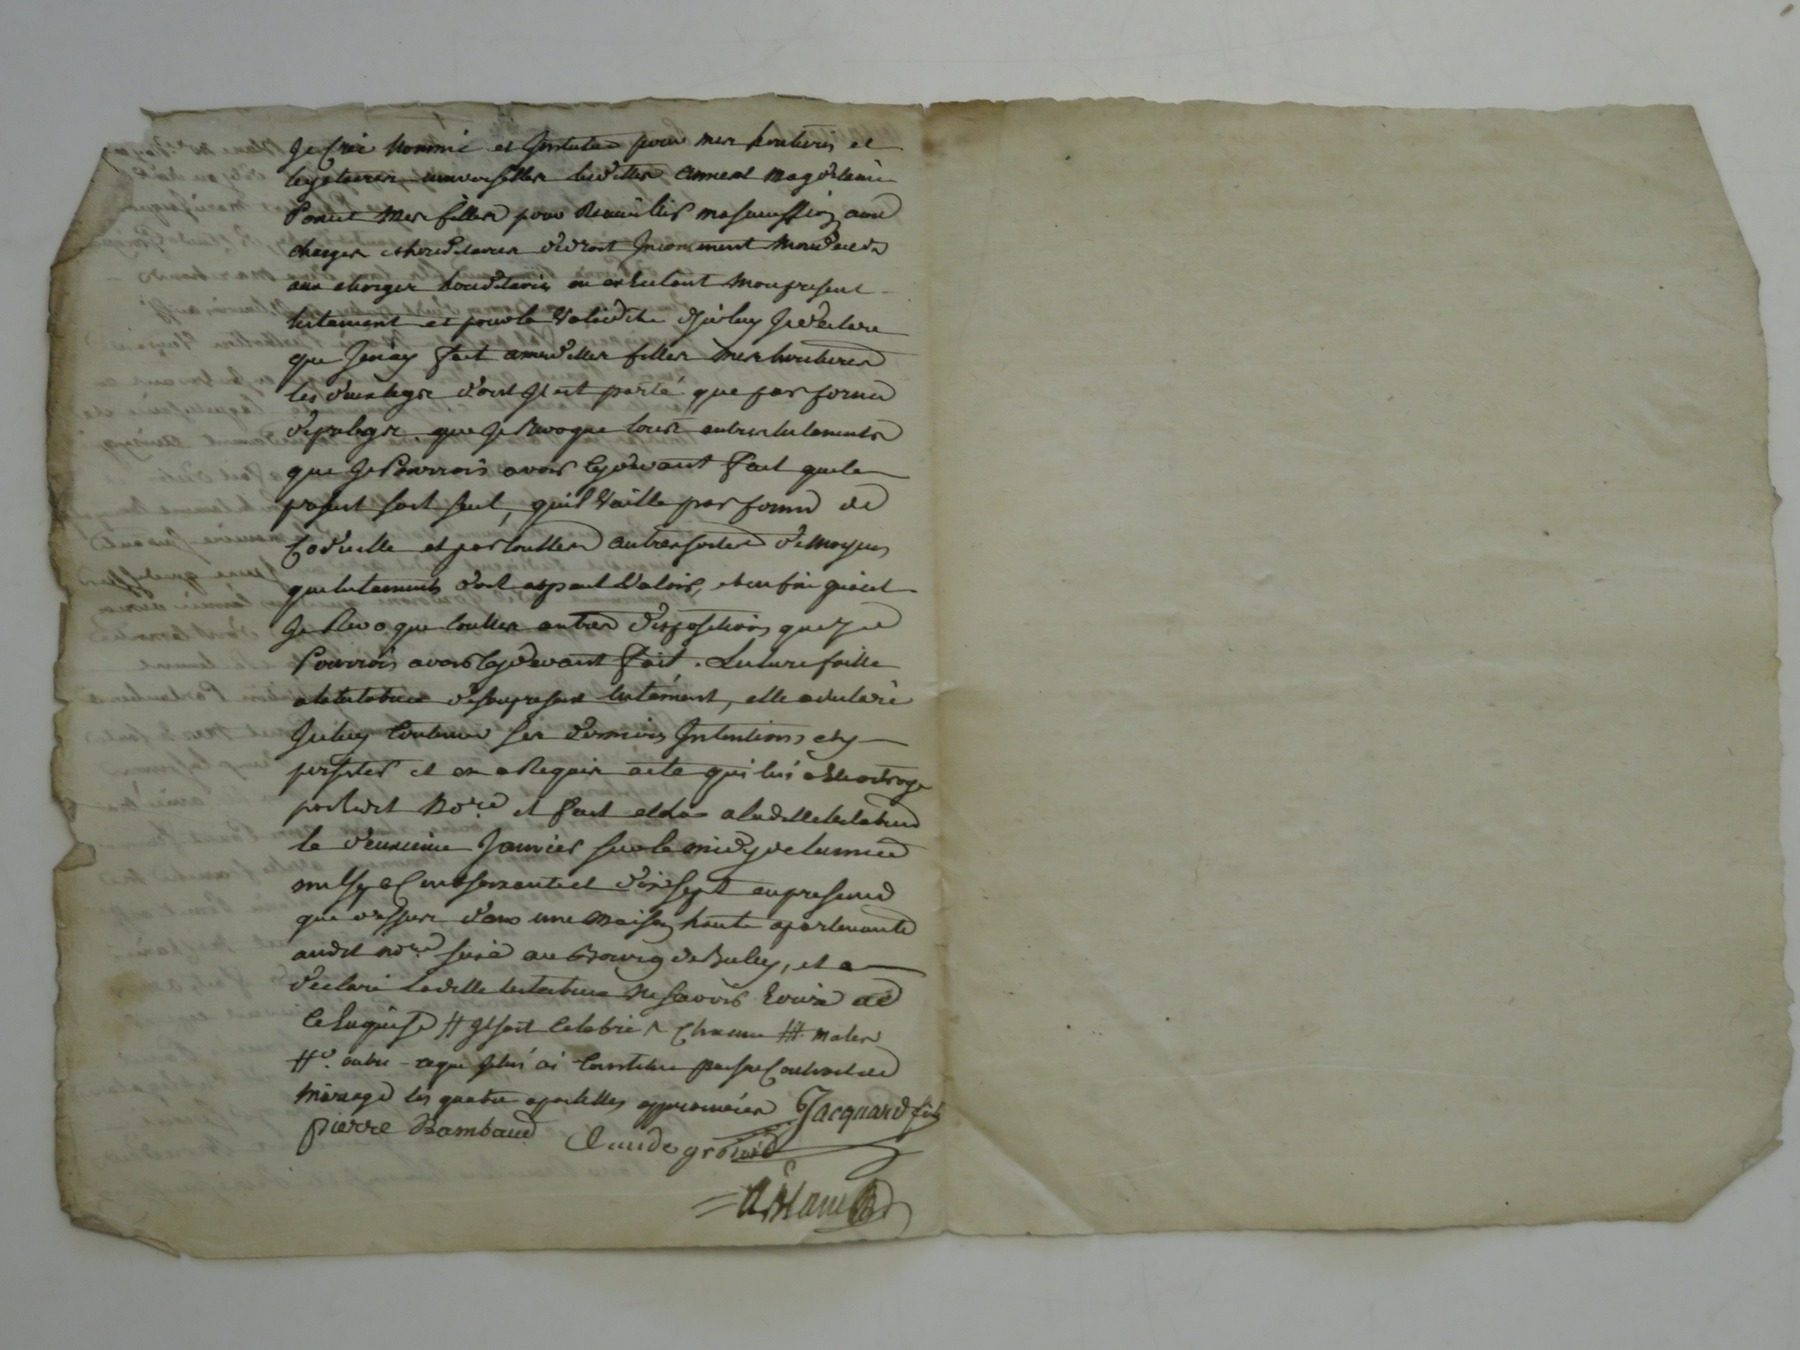 Je Crée Nommé et Institue pour mes heritieres et
legataires universelles lesdittes Anne et Magdelaine
Ponet mes filles pour Recueillir ma succession aux
charges hereditaires
aux charges hereditaires en executant mon present
testament et pour la Validité d'iceluy Je declare
que J'en ay fait a mesdittes filles mes heritieres
les d'uns legs dont Il est parté que par forme
de prelegs que Je Revoque tous autres testaments
que Je Pourrois avoir Cy devant fait que le
present soit seul, qu'il Vaille par forme de
Codicille et par touttes autres sortes de moyens
que testaments dont et peut Valoir, et enfin que
Je Revoque touttes autres dispositions que Je
Pourrois avoir Cy devant fait. Lecture faitte
a la testatrice de son present testament, elle a declaré
Iceluy Contenir ses dernieres Intentions et y
persister et en a Requis acte qui lui a été octroyé
par ledit Nore et fait et clos a laditte testatrice
le deuxieme Janvier sur le midy de l'année
mil sept Cent soixante et dixsept en presence
que dessus dans une maison haute apartenante
audit nore size au Bourg de Bully, et a
declaré laditte testatrice ne sçavoir Ecrire de
Ce Enquise # Il soit Celebré Chacune ## males
#° outre ce que Je lui ai Constitué par son Contrat de
mariage les quatre apostilles approuvées Jacquard fils
pierre Rambaud Claude